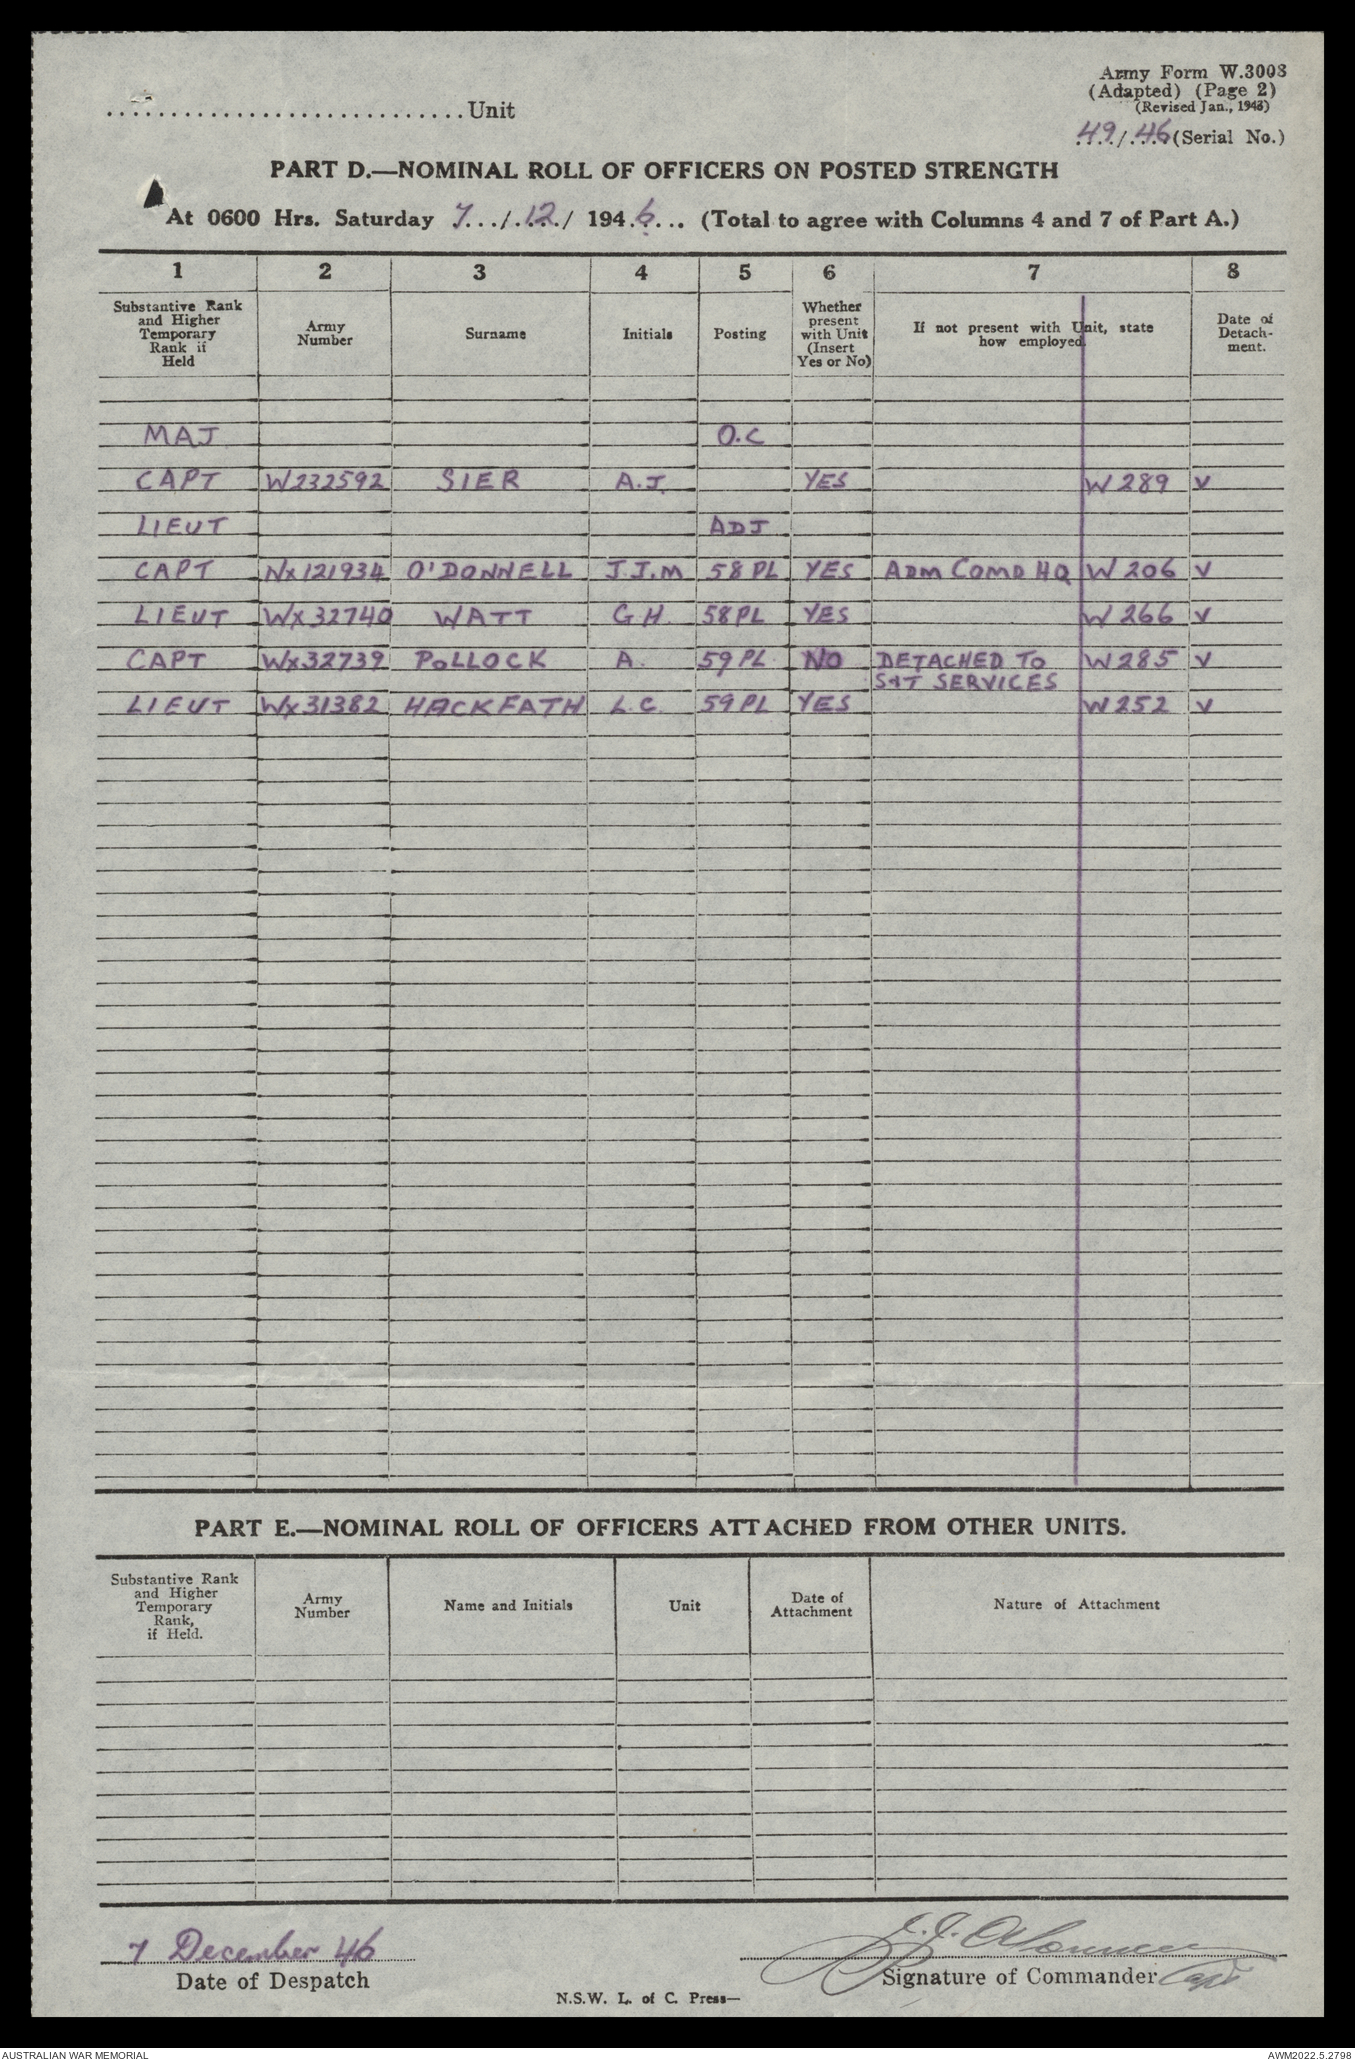 Army Form W.3008
(Adapted) (Page 2)
(Revised Jan., 1943)
..............................Unit
49/46 (Serial No.)
PART D.—NOMINAL ROLL OF OFFICERS ON POSTED STRENGTH
At 0600 Hrs. Saturday 7.../.12./ 194.6... (Total to agree with Columns 4 and 7 of Part A.)
1 2 3 4 5 6 7 8
Substantive Rank and Higher Temporary Rank if Held
Army Number
Surname
Initials
Posting
Whether present with Unit (Insert Yes or No)
If not present with Unit, state how employed
Date of Detach-ment.
MAJ O.C
CAPT W232592 SIER A.J. YES W289 V
LIEUT ADJ
CAPT NX121934 O'DONNELL J.J.M 58 PL YES ADM COMD HQ W206 V
LIEUT WX32740 WATT G.H. 58 PL YES W266 V
CAPT WX32739 POLLOCK A. 59 PL NO DETACHED TO W285 V
S&T SERVICES
LIEUT WX31382 HACKFATH L.C. 59 PL YES W252 V
PART E.—NOMINAL ROLL OF OFFICERS ATTACHED FROM OTHER UNITS.
Substantive Rank and Higher Temporary Rank, if Held.
Army Number
Name and Initials
Unit
Date of Attachment
Nature of Attachment
7 December 46
Date of Despatch
Signature of Commander Capt
N.S.W. L. of C. Press—
AUSTRALIAN WAR MEMORIAL
AWM2022.5.2798